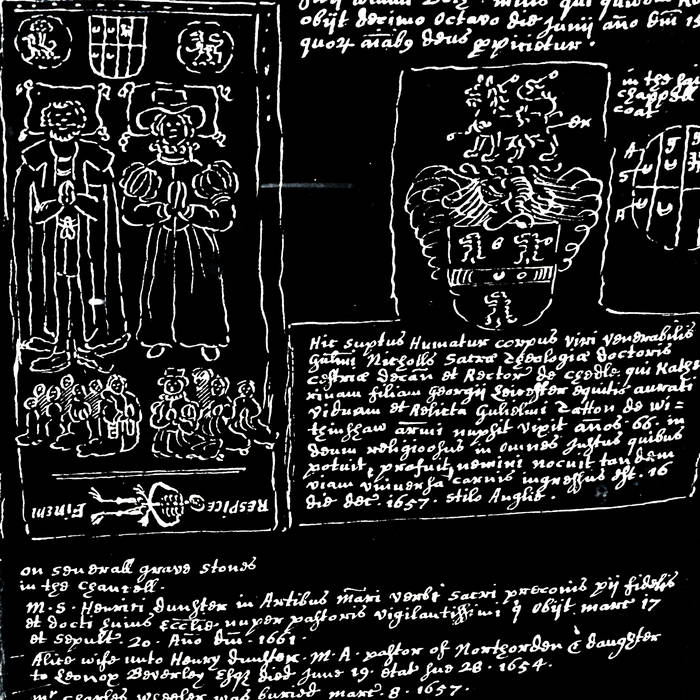 obijt decimo octavo die Junij año dm̄ 15
quor aīab9 deus ppicietur .
in the
chappell
coat
or
A
S
A
Hic suptus Humatur corpus viri venerabilis
Gulmi Nicholls Sacræ Theologiæ doctoris
cestriæ decan et Rector de Chedle qui Kathe
rinam filiam Georgij Leicester equitis aurati
viduam et Relicta Gulielmi Tatton de Wi=
thinshaw armi nupsit vixit años 66. in
deum religiosus in omnes Justus quibus
potuit, profuit, nemini nocuit tandem
viam universa carnis ingressus est. 16
die dec. 1657. stilo Angliæ.
RESPICE FINEM
on severall grave stones
in the Chancell.
M. S. Henrici Dunster in Artibus māri verbi sacri preconis pij fidelis
et docti huius Eccliæ nuper pastoris vigilantissimi q obijt mart 17
et sepult. 20. Año Dm̄. 1661.
Alice wife unto Henry Dunster. M. A. pastor of Northorden & daughter
to Leonor Beverley Esqr died June 19. etat suæ 28. 1654.
mr Charles Wheeler was buried mart. 8. 1657.